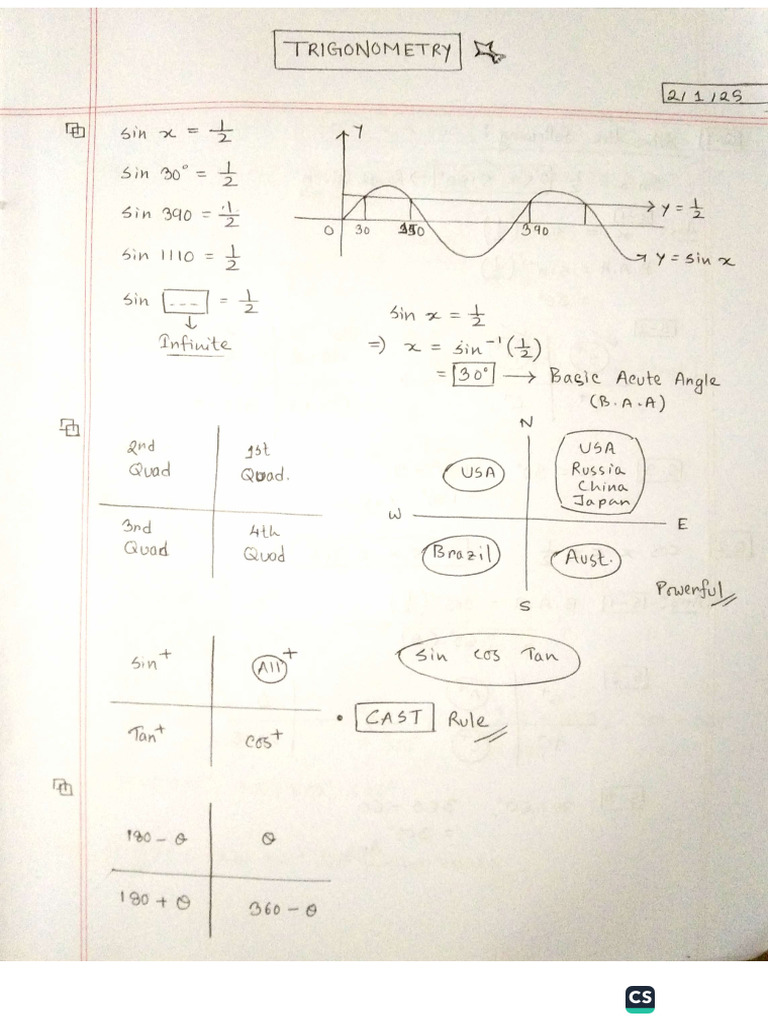 TRIGONOMETRY
2/1/25
sin x = 1/2
sin 30° = 1/2
sin 390 = 1/2
sin 1110 = 1/2
sin [---] = 1/2
Infinite
Y
y = 1/2
O 30 150 390
y = sin x
sin x = 1/2
=) x = sin⁻¹(1/2)
= 30° → Basic Acute Angle
(B.A.A)
2nd Quad
1st Quad.
3rd Quad
4th Quad
N
USA
USA
Russia
China
Japan
W
E
Brazil
Aust.
S
Powerful
Sin⁺
All⁺
Tan⁺
Cos⁺
Sin Cos Tan
• CAST Rule
180 - θ
θ
180 + θ
360 - θ
CS